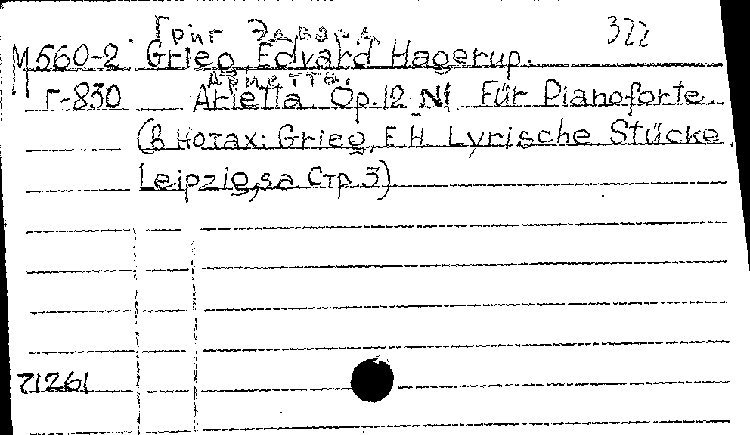 Григ Эдвард 322
М560-2 Grieg, Edvard Hagerup.
Ариетта.
Г-830 Arietta. Op.12 N1 Für Pianoforte.
(В нотах: Grieg, E.H. Lyrische Stücke.
Leipzig, s.a. Стр. 3)
71261